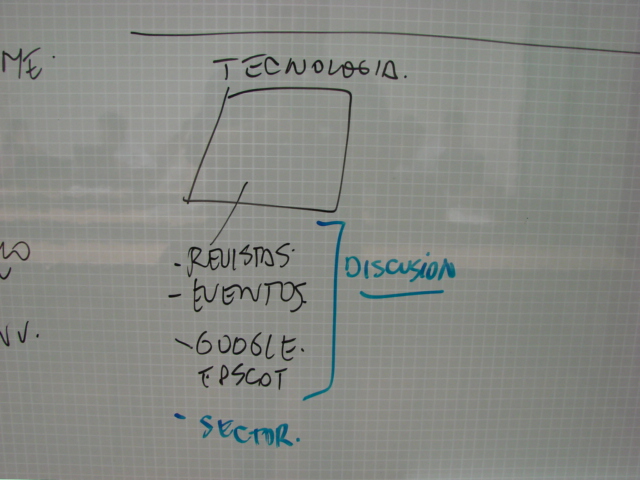 ME.
TECNOLOGIA.
- REVISTAS.
- EVENTOS.
- GOOGLE.
EPSCOT
DISCUSIÓN
- SECTOR.